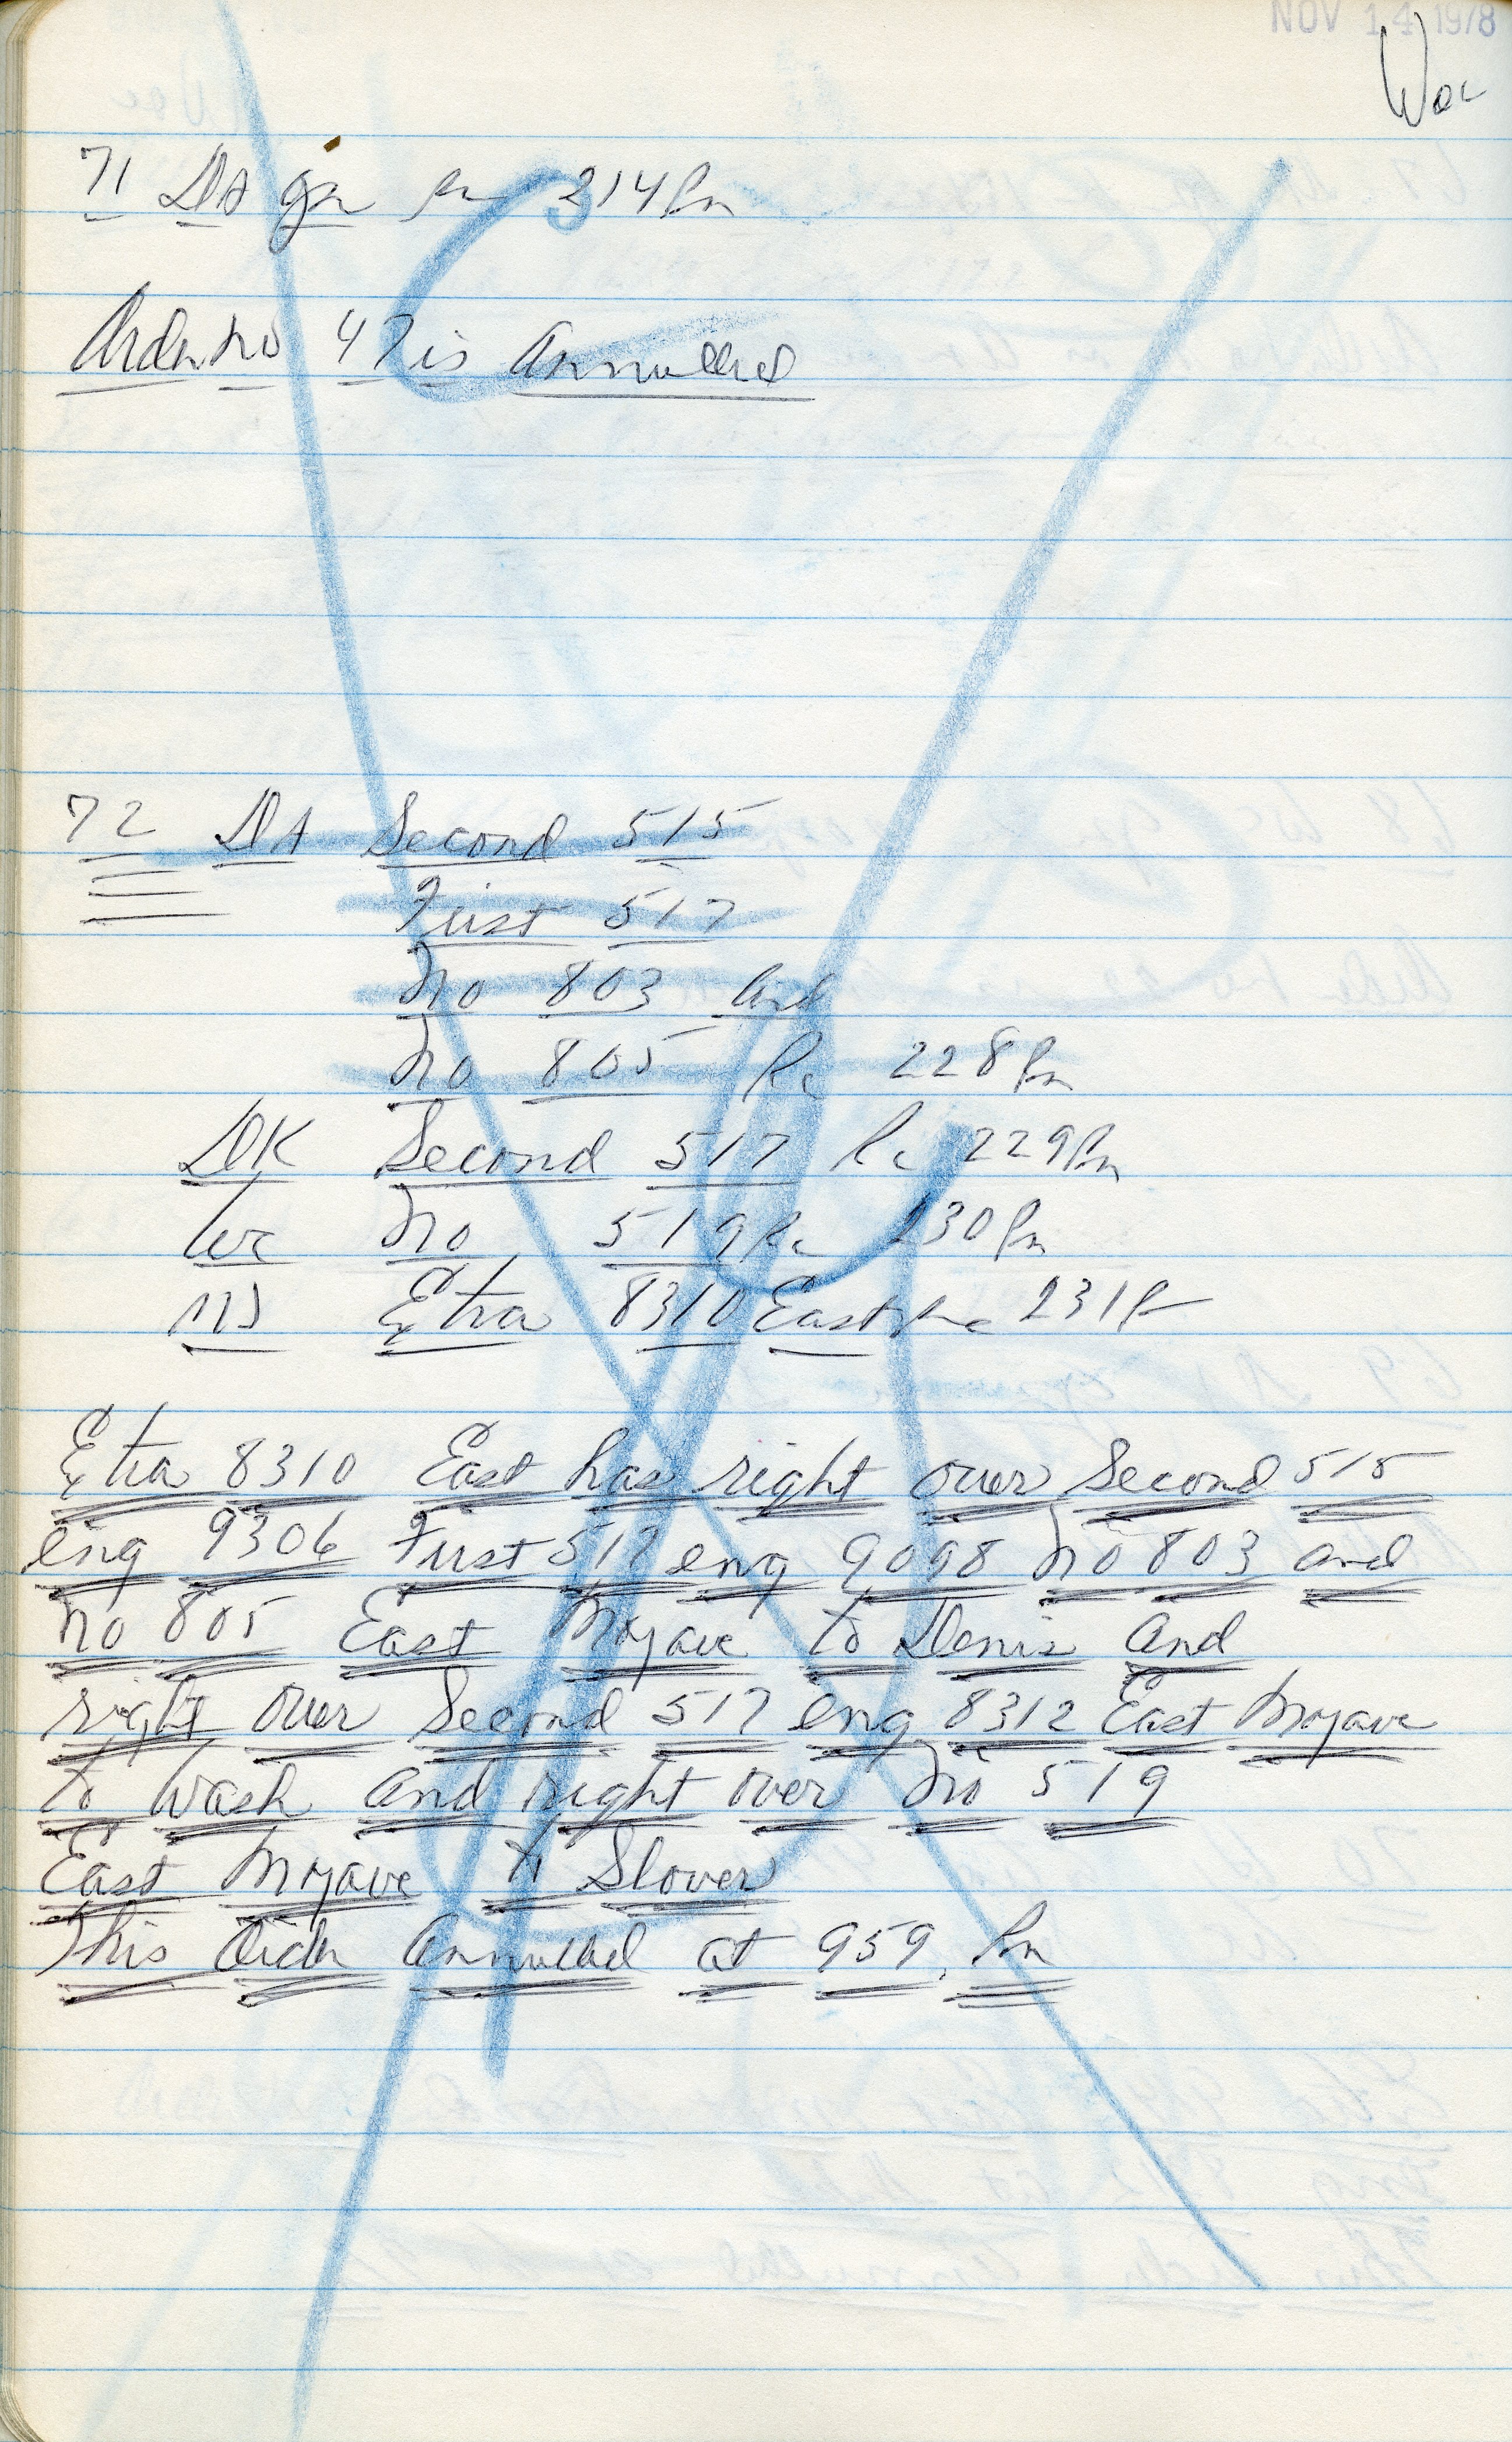 NOV 14 1978
71 DA gm 214 Pm
Order No 47 is Annulled
72 DA Second 515
First 517
No 803 and
No 805 Rc 228 Pm
DK Second 517 Rc 229 Pm
wc No 519 Rc 230 Pm
MJ Extra 8310 East Rc 231 P
Extra 8310 East has right over Second 515
eng 9306 First 517 eng 9098 No 803 and
No 805 East Mojave to Denis and
right over Second 517 eng 8312 East Mojave
to Wash and right over No 519
East Mojave to Slover
This Order Annulled at 959 Pm